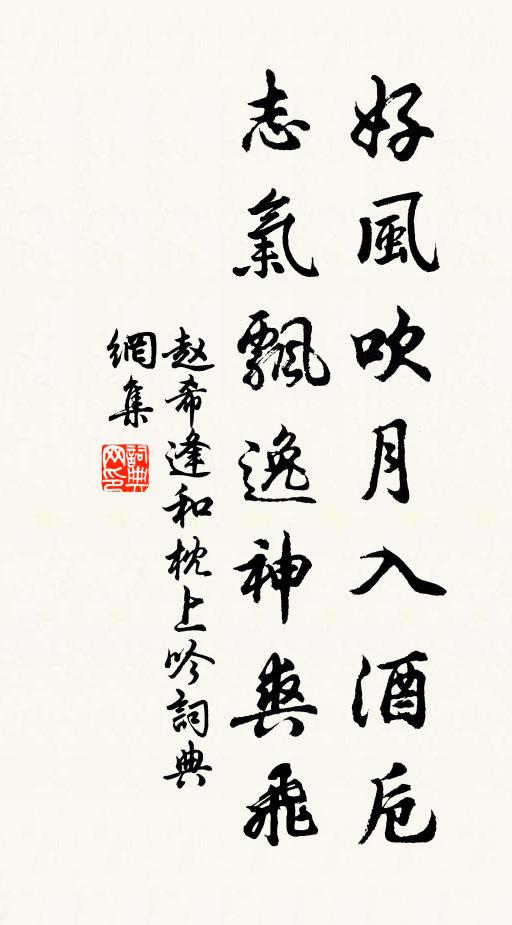 好風吹月入酒卮
志氣飄逸神爽飛
赵希逢和枕上吟詞典
網集
詞典网印